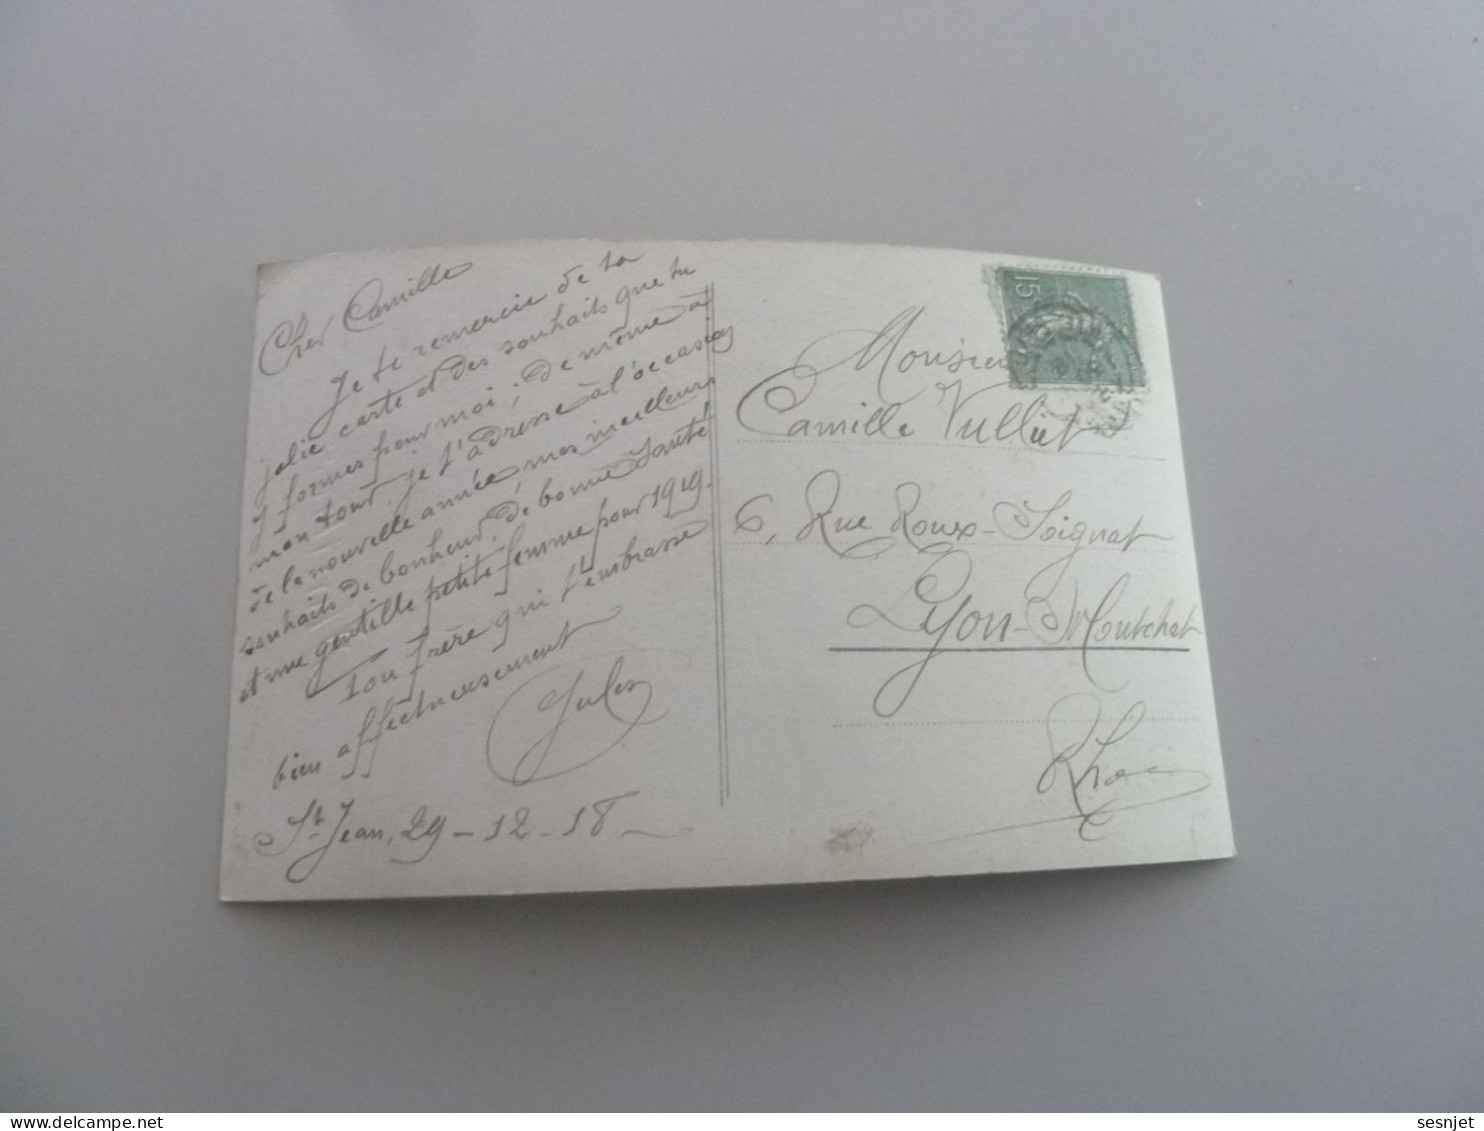 Cher Camille
Je te remercie de ta
jolie carte et des souhaits que tu
formes pour moi; de même à
mon tour je t'adresse à l'occasion
de la nouvelle année, mes meilleurs
souhaits de bonheur, de bonne santé
et une gentille petite femme pour 1919.
Ton frère qui t'embrasse
bien affectueusement
Jules
St Jean, 29-12-18
15
Monsieur
Camille Vulliet
6, Rue Roux-Soignat
Lyon-Montchat
Rhône
sesnjet